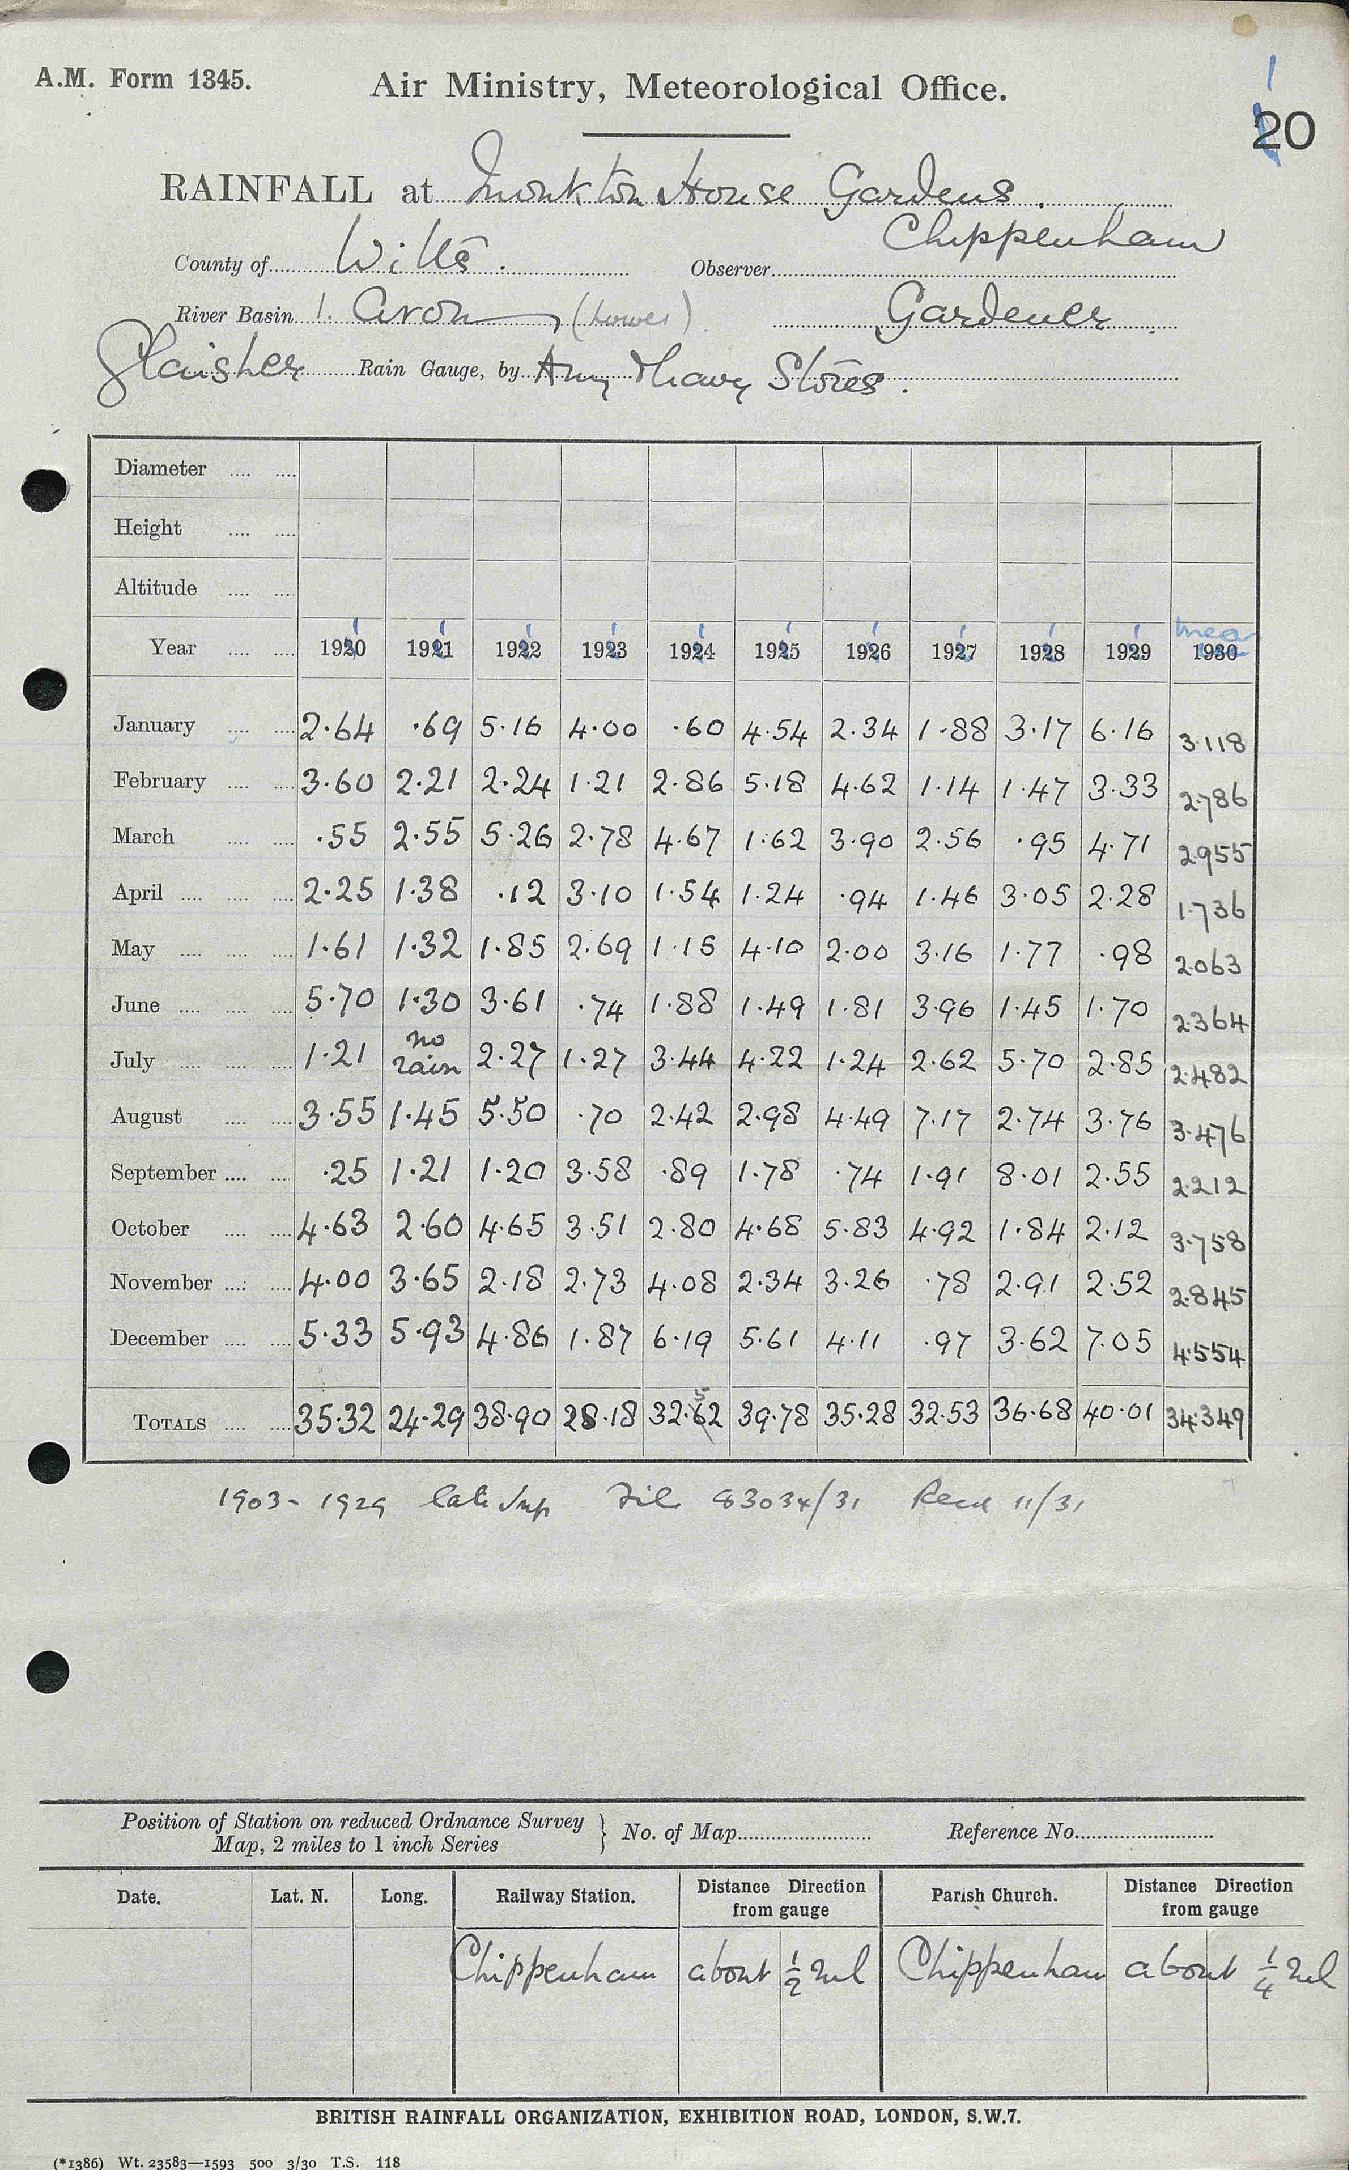 A.M. Form 1345.
Air Ministry, Meteorological Office.
1
20
RAINFALL at Monkton House Gardens.
Chippenham
County of Wilts. Observer
River Basin 1. Avon (Lower) Gardener.
Glaisher Rain Gauge, by Army & Navy Stores.
Diameter
Height
Altitude
mean
Year 1910 1911 1912 1913 1914 1915 1916 1917 1918 1919 1930
January 2.64 .69 5.16 4.00 .60 4.54 2.34 1.88 3.17 6.16 3.118
February 3.60 2.21 2.24 1.21 2.86 5.18 4.62 1.14 1.47 3.33 2.786
March .55 2.55 5.26 2.78 4.67 1.62 3.90 2.56 .95 4.71 2.955
April 2.25 1.38 .12 3.10 1.54 1.24 .94 1.46 3.05 2.28 1.736
May 1.61 1.32 1.85 2.69 1.15 4.10 2.00 3.16 1.77 .98 2.063
June 5.70 1.30 3.61 .74 1.88 1.49 1.81 3.96 1.45 1.70 2.364
July 1.21 no rain 2.27 1.27 3.44 4.22 1.24 2.62 5.70 2.85 2.482
August 3.55 1.45 5.50 .70 2.42 2.98 4.49 7.17 2.74 3.76 3.476
September .25 1.21 1.20 3.58 .89 1.78 .74 1.91 8.01 2.55 2.212
October 4.63 2.60 4.65 3.51 2.80 4.68 5.83 4.92 1.84 2.12 3.758
November 4.00 3.65 2.18 2.73 4.08 2.34 3.26 .78 2.91 2.52 2.845
December 5.33 5.93 4.86 1.87 6.19 5.61 4.11 .97 3.62 7.05 4.554
TOTALS 35.32 24.29 38.90 28.18 32.52 39.78 35.28 32.53 36.68 40.01 34.349
1903 - 1929 File 83034/31 Recd 11/31
Position of Station on reduced Ordnance Survey
Map, 2 miles to 1 inch Series
No. of Map Reference No.
Date. Lat. N. Long. Railway Station. Distance Direction from gauge Parish Church. Distance Direction from gauge
Chippenham about 1/2 ml Chippenham about 1/4 ml
BRITISH RAINFALL ORGANIZATION, EXHIBITION ROAD, LONDON, S.W.7.
(*1386) Wt. 23583—1593 500 3/30 T.S. 118